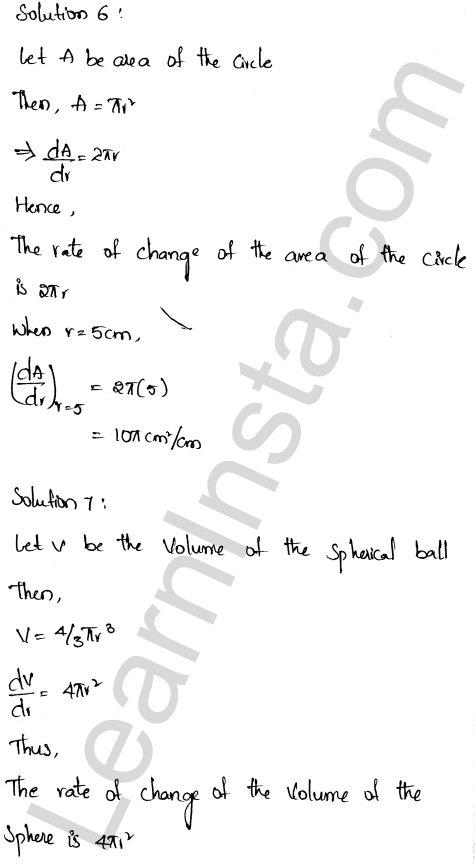 Solution 6 :
Let A be area of the circle
Then, A = πr²
⇒ dA/dr = 2πr
Hence,
The rate of change of the area of the circle
is 2πr
When r = 5cm,
(dA/dr)r=5 = 2π(5)
= 10π cm²/cm
Solution 7 :
Let V be the Volume of the Spherical ball
Then,
V = 4/3 πr³
dV/dr = 4πr²
Thus,
The rate of change of the Volume of the
Sphere is 4πr²
LearnInsta.com